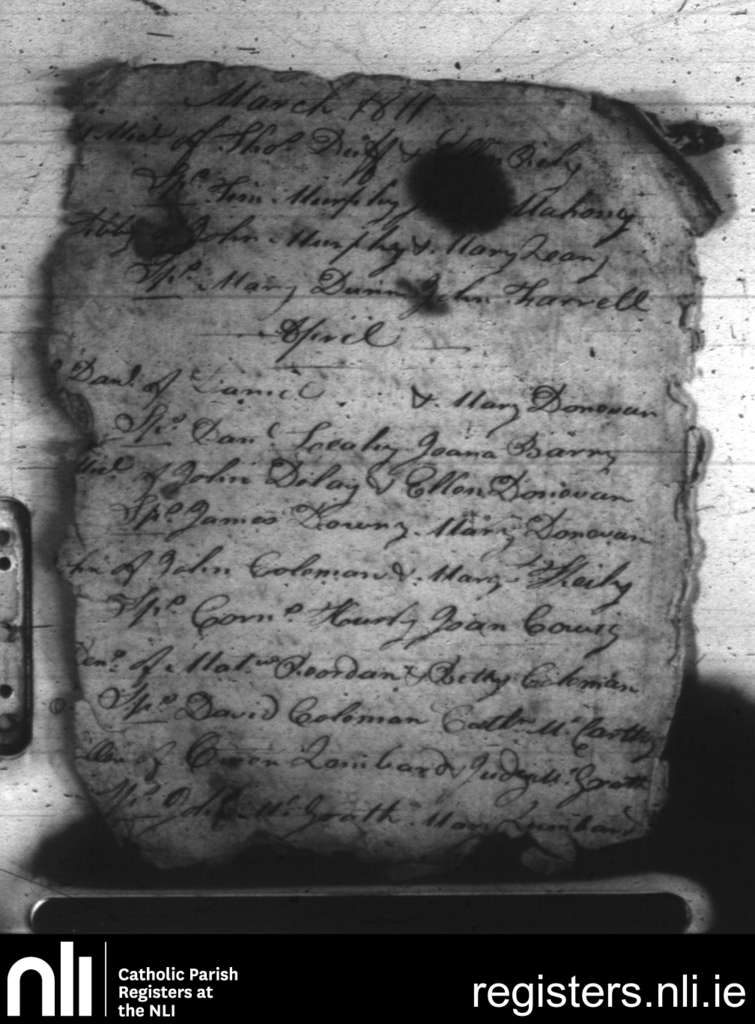 March 1811
Mich.l of Thos Duff & Ellen
Sps. Tim Murphy Mahony
Abby John Murphy & Mary Leary
Sps. Mary Dunn John Farrell
April
Danl. of Daniel & Mary Donovan
Sps. Danl Leeahy Joana Barry
Micl. of John Delay & Ellen Donovan
Sps. James Downy Mary Donovan
of John Coleman & Mary Keily
Sps. Corns. Hurly Joan
Dens. of Matw Reordan & Betty Coleman
Sps. David Coleman Cathn McCarthy
Ellen of Owen Lombard & Judy McGrath
Sps. McGrath Mary Lombard
nli
Catholic Parish
Registers at
the NLI
registers.nli.ie